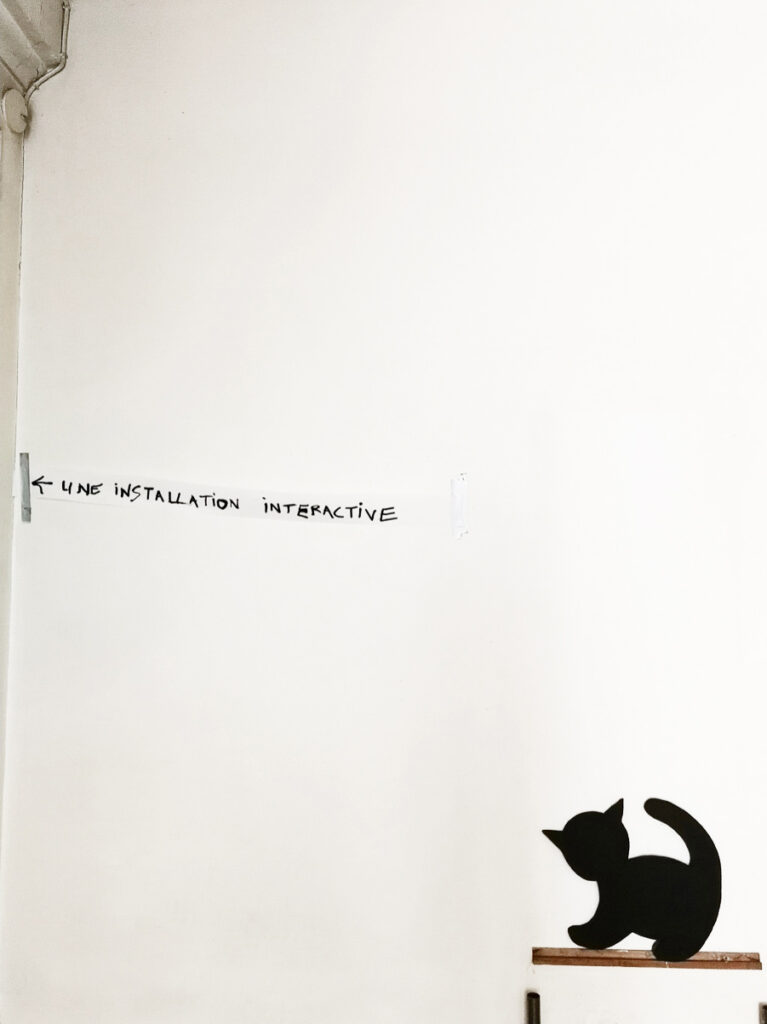 ← UNE INSTALLATION INTERACTIVE